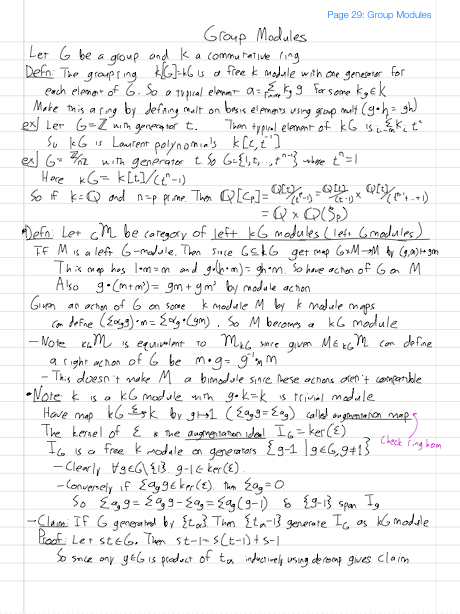 Page 29: Group Modules
Group Modules
Let G be a group and k a commutative ring
Defn: The group ring k[G]=kG is a free k module with one generator for
each element of G. So a typical element a = Σ_finite k_g g for some k_g ∈ k
Make this a ring by defining mult on basis elements using group mult (g·h = gh)
ex) Let G=ℤ with generator t. Then typical element of kG is Σ k_i t^i
So kG is Laurent polynomials k[t,t⁻¹]
ex) G=ℤ/nℤ with generator t. So G={1,t,...,tⁿ⁻¹} where tⁿ=1
Here kG = k[t]/(tⁿ-1)
So if k=ℚ and n=p prime. Then ℚ[Cp] = ℚ[t]/(tⁿ-1) = ℚ[t]/(t-1) × ℚ[t]/(tⁿ⁻¹+...+1)
= ℚ × ℚ(ζp)
• Defn: Let _G M be category of left kG modules (left G modules)
If M is a left G-module. Then since G⊆kG get map G×M→M by (g,m)↦gm
This map has 1·m=m and g·(h·m) = gh·m. So have action of G on M
Also g·(m+m') = gm+gm' by module action
Given an action of G on some k module M by k module maps
can define (Σα_g g)·m = Σα_g·(gm). So M becomes a kG module
- Note _kG M is equivalent to M_kG since given M∈_kG M can define
a right action of G be m·g = g⁻¹·m
- This doesn't make M a bimodule since these actions aren't compatible
• Note: k is a kG module with g·k=k is trivial module
Have map kG →ε k by g↦1 (Σa_g g = Σa_g) called augmentation map
check ring hom
The kernel of ε is the augmentation ideal I_G = ker(ε)
I_G is a free k module on generators {g-1 | g∈G, g≠1}
- Clearly ∀g∈G\{1}. g-1∈ker(ε).
- Conversely if Σa_g g∈ker(ε). then Σa_g=0
So Σa_g g = Σa_g g - Σa_g = Σa_g(g-1) so {g-1} span I_G
- Claim: If G generated by {t_α} Then {t_α-1} generate I_G as kG module
Proof: Let s,t∈G. Then st-1 = s(t-1)+s-1
So since any g∈G is product of t_α inductively using decomp gives claim